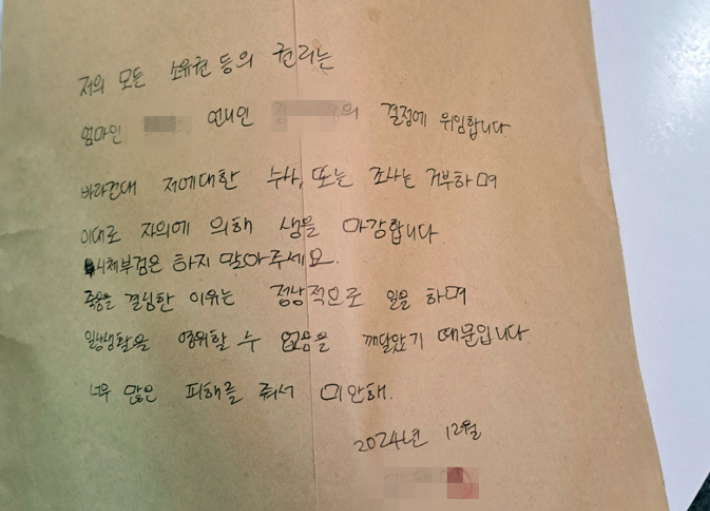 저의 모든 소유권 등의 권리는
엄마인 언니인 의 결정에 위임합니다
바라건대 저에대한 수사, 또는 조사는 거부하며
이대로 자의에 의해 생을 마감합니다.
시체부검은 하지 말아주세요.
죽음을 결심한 이유는 정상적으로 일을 하며
일상생활을 영위할 수 없음을 깨달았기 때문입니다.
너무 많은 피해를 줘서 미안해.
2024년 12월